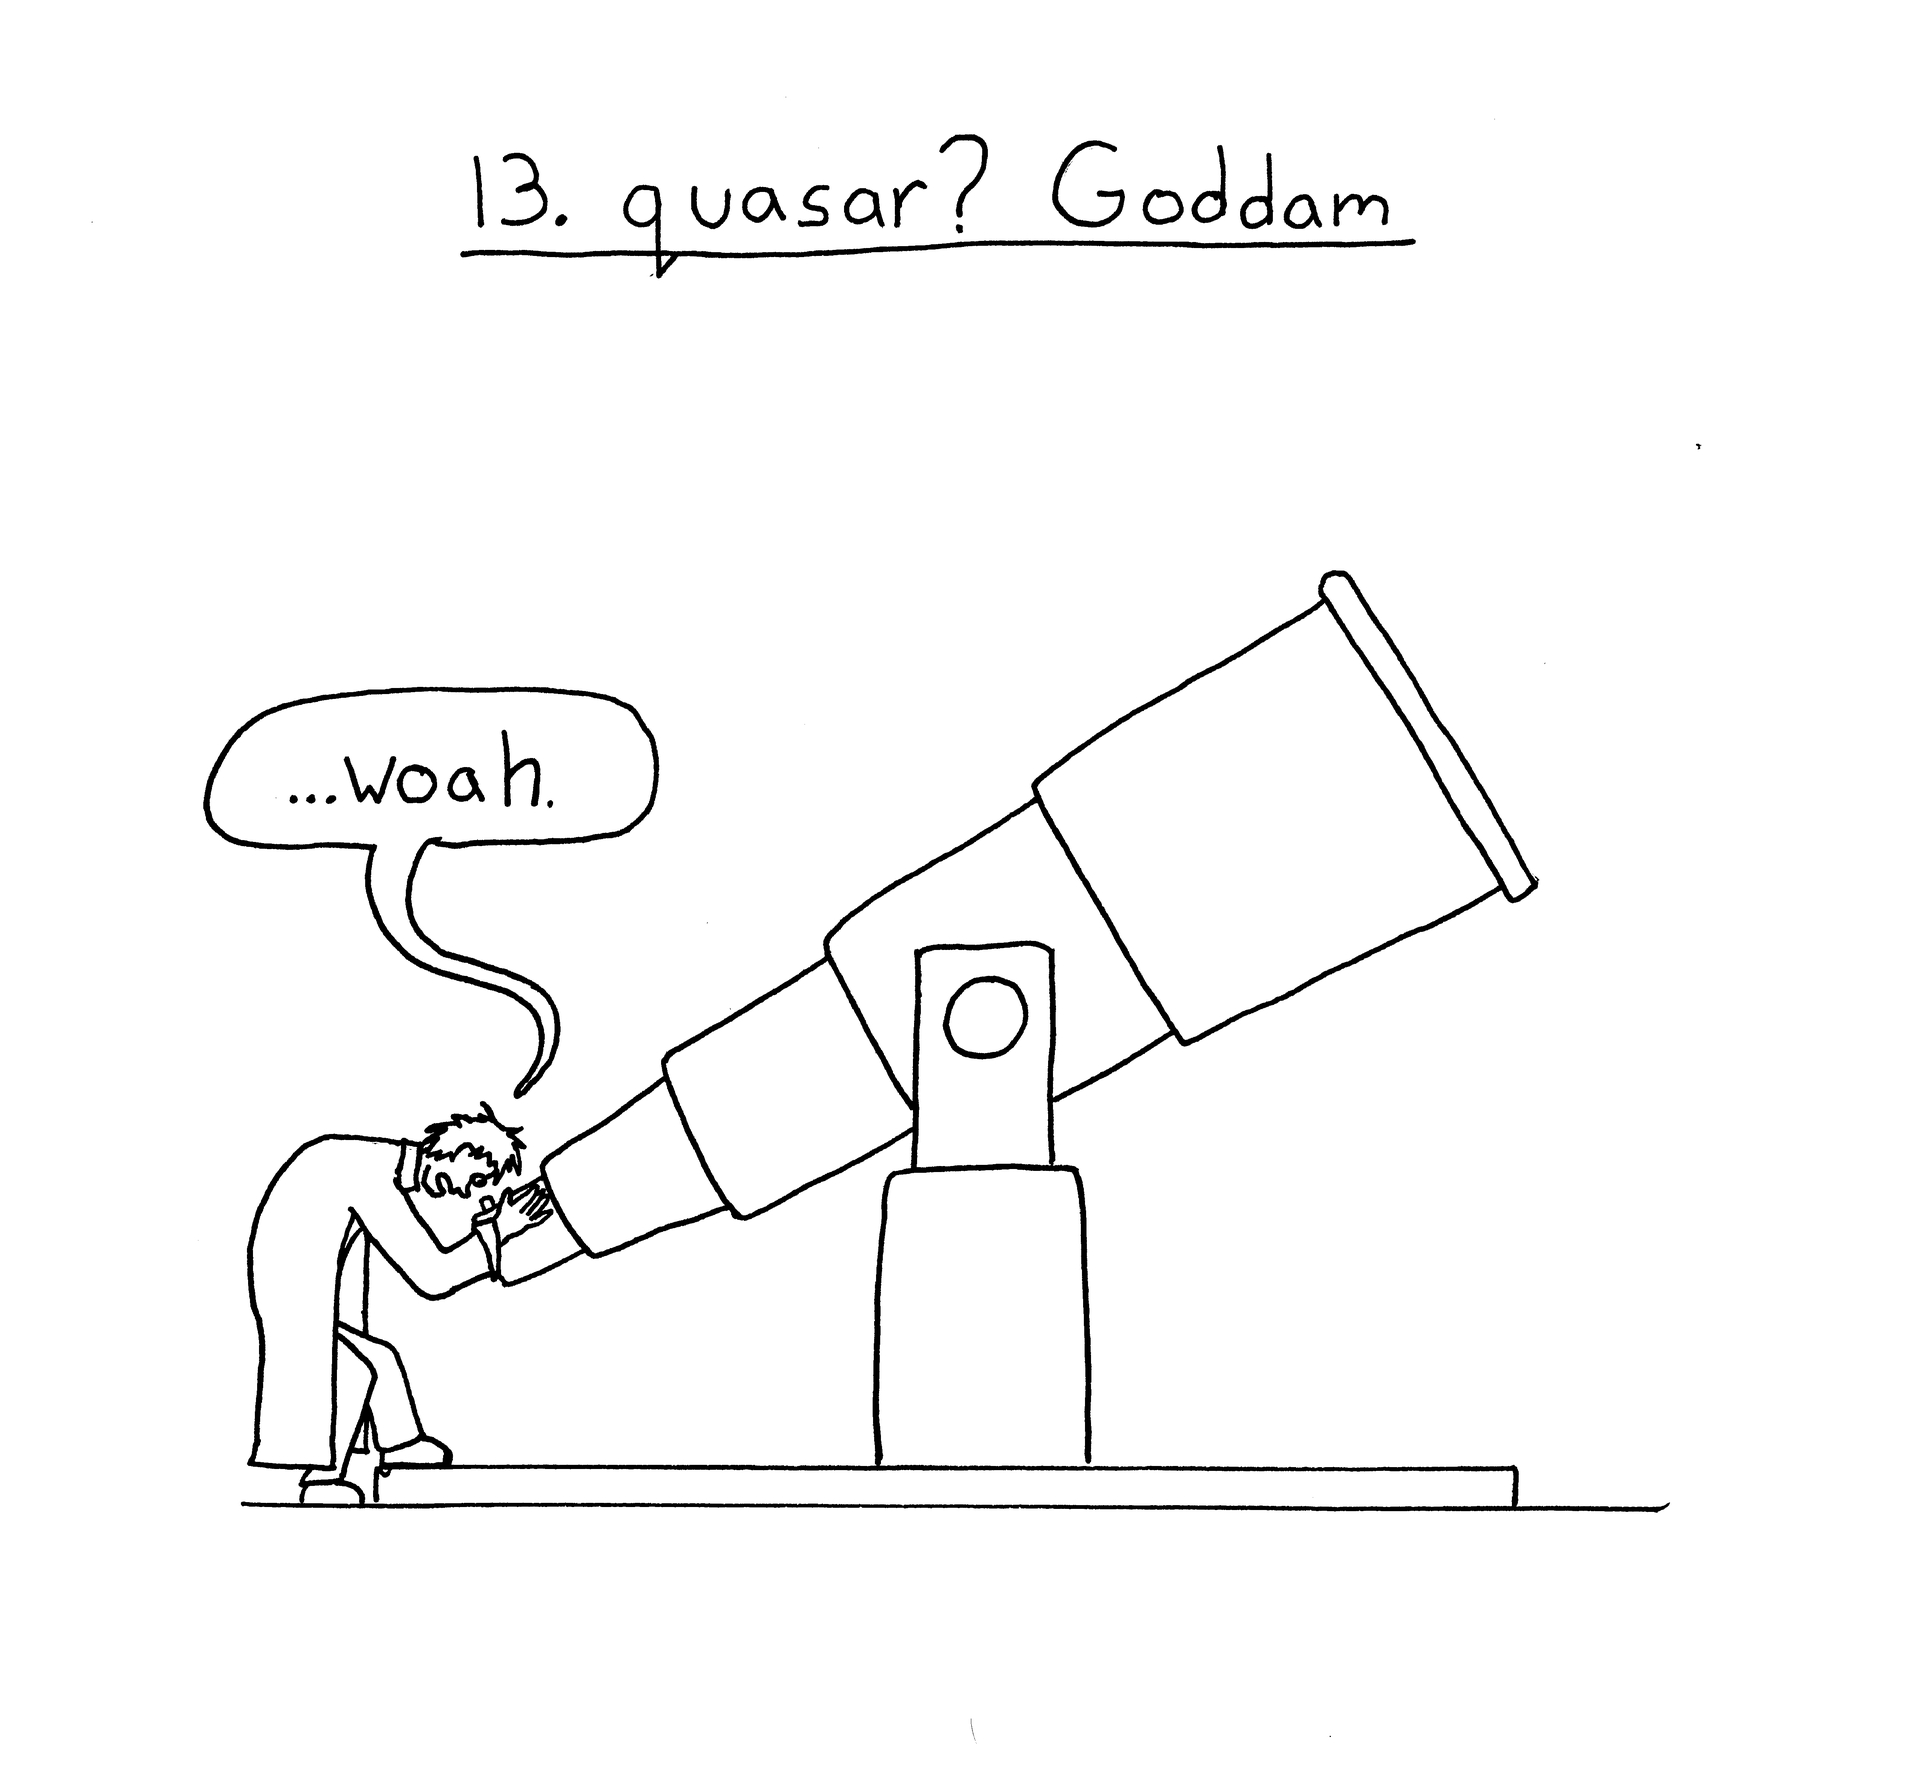 13. quasar? Goddam
...woah.